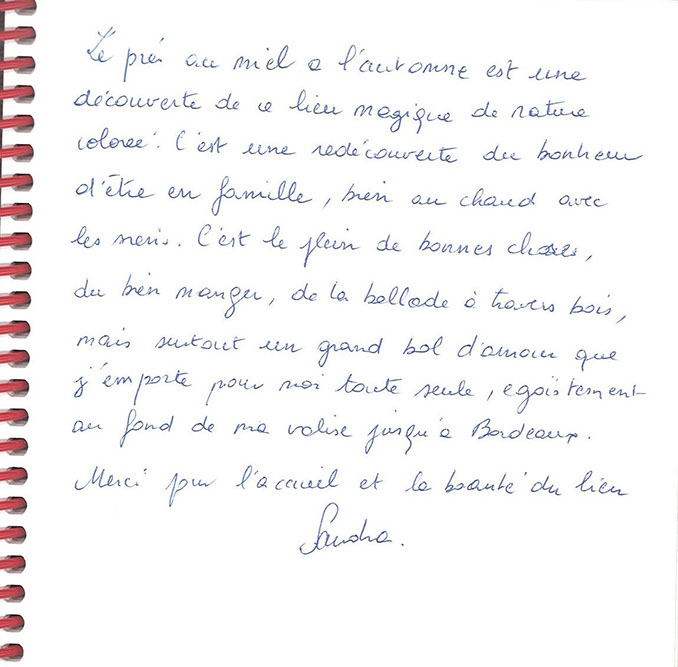 Le pré au miel a l'automne est une
découverte de ce lieu magique de nature
coloreé. C'est une redécouverte du bonheur
d'être en famille, bien au chaud avec
les miens. C'est le plein de bonnes choses,
du bien manger, de la ballade à travers bois,
mais surtout un grand bol d'amour que
j'emporte pour moi toute seule, egoïstement
au fond de ma valise jusqu'a Bordeaux.
Merci pour l'accueil et la beauté du lieu
Sandra.